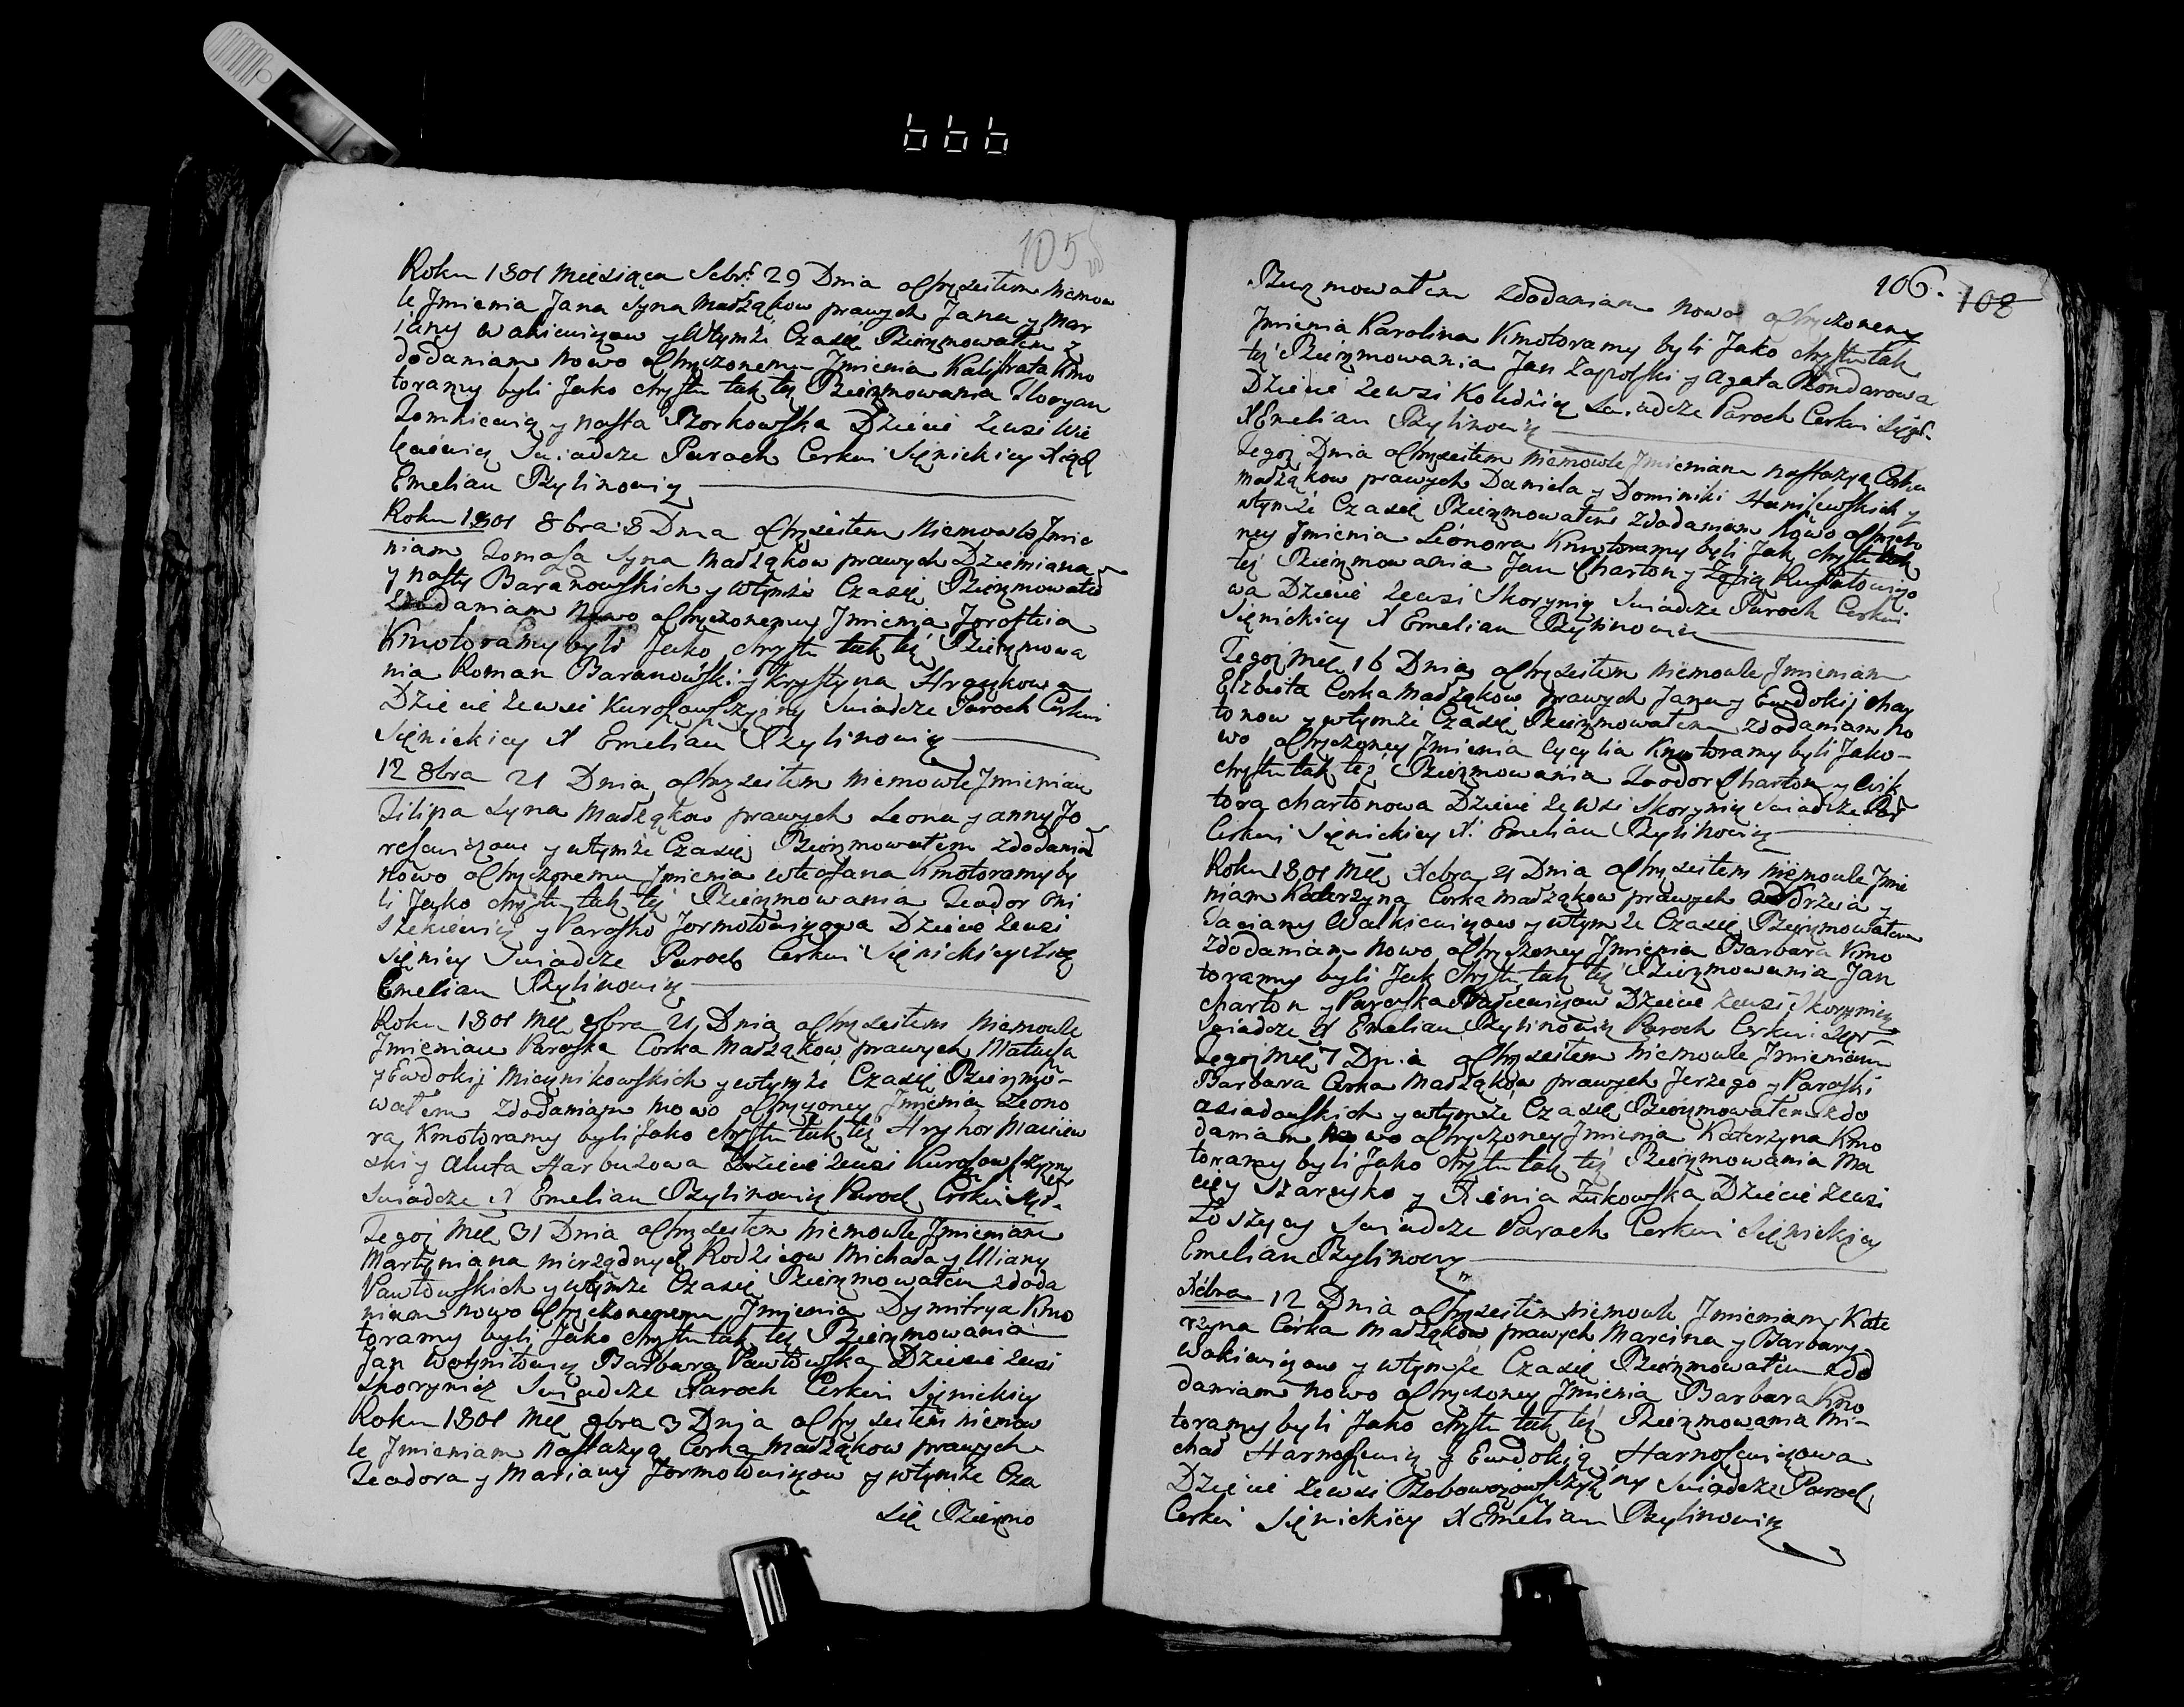 666
105
Roku 1801 Miesiąca Sebr. 29 Dnia ochrzciłem Niemow
le Jmienia Jana Syna Małżąkow prawych Jana y Mar
iany Wakiewiczow y wtymże Czasię Bierzmowałem z
dodaniam Nowo ochrzczonemu Jmienia Kalistrata Kmo
toramy byli Jako chrztu tak też Bierzmowania Floryan
Tomkiewicz y Nasta Borkowska Dziecie Zewsi Wie
Swiadcze Paroch Cerkwi Sięnickiey Xiądz
Emelian Bylinowicz
Roku 1801 8bra 8 Dnia ochrzciłem Niemowlo Jmie
niam Tomasza Syna Małżąkow prawych Dziemiana
y Nasty Baranowskich y wtymże Czasię Bierzmowałe
Zdodaniam Nowo ochrzczonemu Jmienia Jerofteia
Kmotoramy byli Jako chrztu tak też Bierzmowa
nia Roman Baranowski y Krystyna Hraykowa
Dziecie Zewsi Kurosowszyzny Swiadcze Paroch Cerkwi
Sięnickiey X Emelian Bylinowicz
12 8bra 21 Dnia ochrzciłem Niemowle Jmieniam
Filipa Syna Małżąkow prawych Leona y Anny Ja
rosewiczow y wtymże Czasię Bierzmowałem Zdodania
Nowo ochrzczonemu Jmienia Kmotoramy by
li Jako chrztu tak też Bierzmowania Teador Oni
szkiewicz y Paraska Jormołowiczowa Dziecie Zewsi
Sięnicy Swiadcze Paroch Cerkwi Sięnickiey Xiądz
Emelian Bylinowicz
Roku 1801 Mcę 8bra 21 Dnia ochrzciłem Niemowle
Jmieniam Paraska Corka Małżąkow prawych Matusza
y Ewdokij Micynikowskich y wtymże Czasię Bierzmo-
wałem Zdodaniam Nowo ochrzczoney Jmienia Leono
ra Kmotoramy byli Jako chrztu tak też Hryhor Maciew
ski y Aluta Harbuzowa Dziecie Zewsi Kurosowszyzny
Swiadcze X Emelian Bylinowicz Paroch Cerkwi Się.
Tegoż Mcę 31 Dnia ochrzciłem Niemowle Jmieniam
Martyniana nierządnych Rodziców Michała y Uliany
Pawłowskich y wtymże Czasię Bierzmowałem Zdoda
niam Nowo ochrzczonemu Jmienia Dymitrya Kmo
toramy byli Jako chrztu tak też Bierzmowania
Jan Woyniłowicz Barbara Pawłowska Dziecie Zewsi
Skorynicz Swiadcze Paroch Cerkwi Sięnickiey
Roku 1801 Mcę 9bra 3 Dnia ochrzciłem Niemow
le Jmieniam Nastazya Corka Małżąkow prawych
Teadora y Marianny Jormołowiczow y wtymże Cza
się Bierzmo
106. 108
Bierzmowałem Zdodaniam Nowo ochrzczoney
Jmienia Karolina Kmotoramy byli Jako chrztu tak
też Bierzmowania Jan Zapolski y Agata Bondarowa
Dziecie Zewsi Kolednicz Swiadcze Paroch Cerkwi Sięn.
X Emelian Bylinowicz
Tegoż Dnia ochrzciłem Niemowle Jmieniam Nastazyą Corka
Małżąkow prawych Daniela y Dominiki Staniszewskich y
wtymże Czasię Bierzmowałem Zdodaniam Nowo ochrzczo
ney Jmienia Léonora Kmotoramy byli Jak chrztu tak
też Bierzmowania Jan Charton y Zofia
wa Dziecie Zewsi Skorynicz Swiadcze Paroch Cerkwi
Sięnickiey X Emelian Bylinowicz
Tegoż Mcę 16 Dnia ochrzciłem Niemowle Jmieniam
Elżbieta Corka Małżąkow prawych Jana y Ewdokij Char
tonow y wtymże Czasię Bierzmowałem Zdodaniam No
wo ochrzczoney Jmienia Cycylia Kmotoramy byli Jako-
chrztu tak też Bierzmowania Teodor Charton y Wik
torą Chartonowa Dziecie Zewsi Skorynicz Swiadcze Par
Cerkwi Sięnickiey X Emelian Bylinowicz
Roku 1801 Mcę Xebra 21 Dnia ochrzciłem Niemowle Jmie
niam Katerzyna Corka Małżąkow prawych Andrzeia y
Taciany Walkiewiczow y wtymże Czasię Bierzmowałem
Zdodaniam Nowo ochrzczoney Jmienia Barbara Kmo
toramy byli Jak chrztu tak też Bierzmowania Jan
Charton y Paraska Dziecie Zewsi Skorynicz
Swiadcze X Emelian Bylinowicz Paroch Cerkwi
Tegoż Mcę 7 Dnia ochrzciłem Niemowle Jmieniam
Barbara Corka Małżąkow prawych Jerzego y Paraski
Asiadowskich y wtymże Czasię Bierzmowałem Zdo
daniam Nowo ochrzczoney Jmienia Katerzyna Kmo
toramy byli Jako chrztu tak też Bierzmowania Ma
ciey Szarcyko y Xénia Zukowska Dziecie Zewsi
Łoszycy Swiadcze Paroch Cerkwi Sięnickiey
Emelian Bylinowicz
Xébra 12 Dnia ochrzciłem Niemowle Jmieniamy Kate
rzyna Córka Małżąkow prawych Marcina y Barbary
Wakiewiczow y wtymże Czasię Bierzmowałem Zdo
daniam Nowo ochrzczoney Jmienia Barbara Kmo
toramy byli Jako chrztu tak też Bierzmowania Mi-
chał Harnosewicz y Ewdokią Harnosewiczowa
Dziecie Zewsi Bobowozowszczyzny Swiadcze Paroch
Cerkwi Sięnickiey X Emelian Bylinowicz